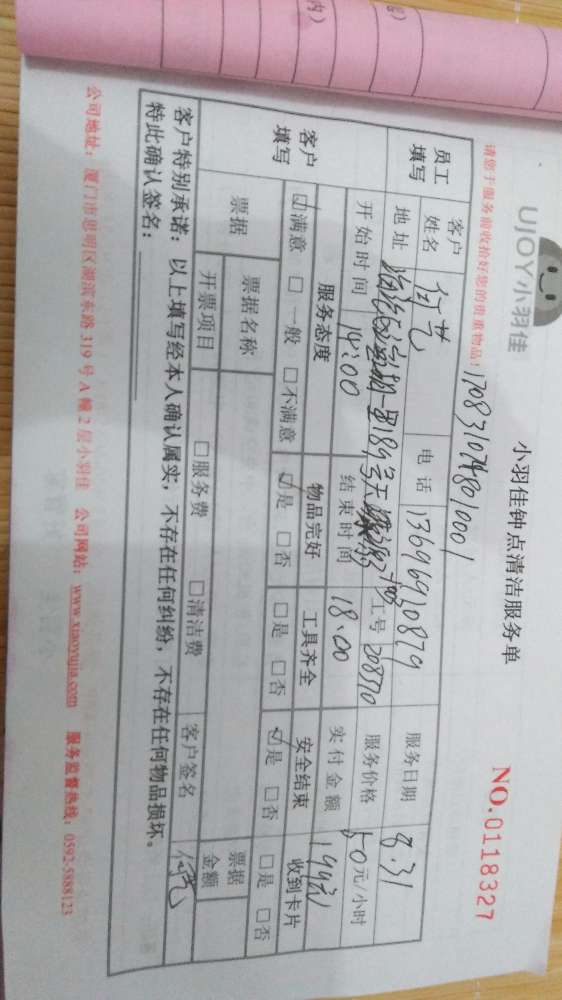 UJOY小羽佳
小羽佳钟点清洁服务单
NO.0118327
请您于服务前收拾好您的贵重物品!
1708310748010001
员工填写
客户姓名
电话 13696910879
服务日期 8.31
地址
工号 208570
服务价格 50元/小时
开始时间 14:00
结束时间 18:00
实付金额
客户填写
服务态度 物品完好 工具齐全 安全结束 收到卡片
☑满意 □一般 □不满意 ☑是 □否 □是 □否 ☑是 □否 □是 □否
票据
票据名称
票据金额
开票项目 □服务费 □清洁费
客户签名
客户特别承诺:以上填写经本人确认属实,不存在任何纠纷,不存在任何物品损坏。
特此确认签名:
公司地址:厦门市思明区湖滨东路319号A幢2层小羽佳 公司网站:www.xiaoyujia.com 服务监督热线:0592-5888123